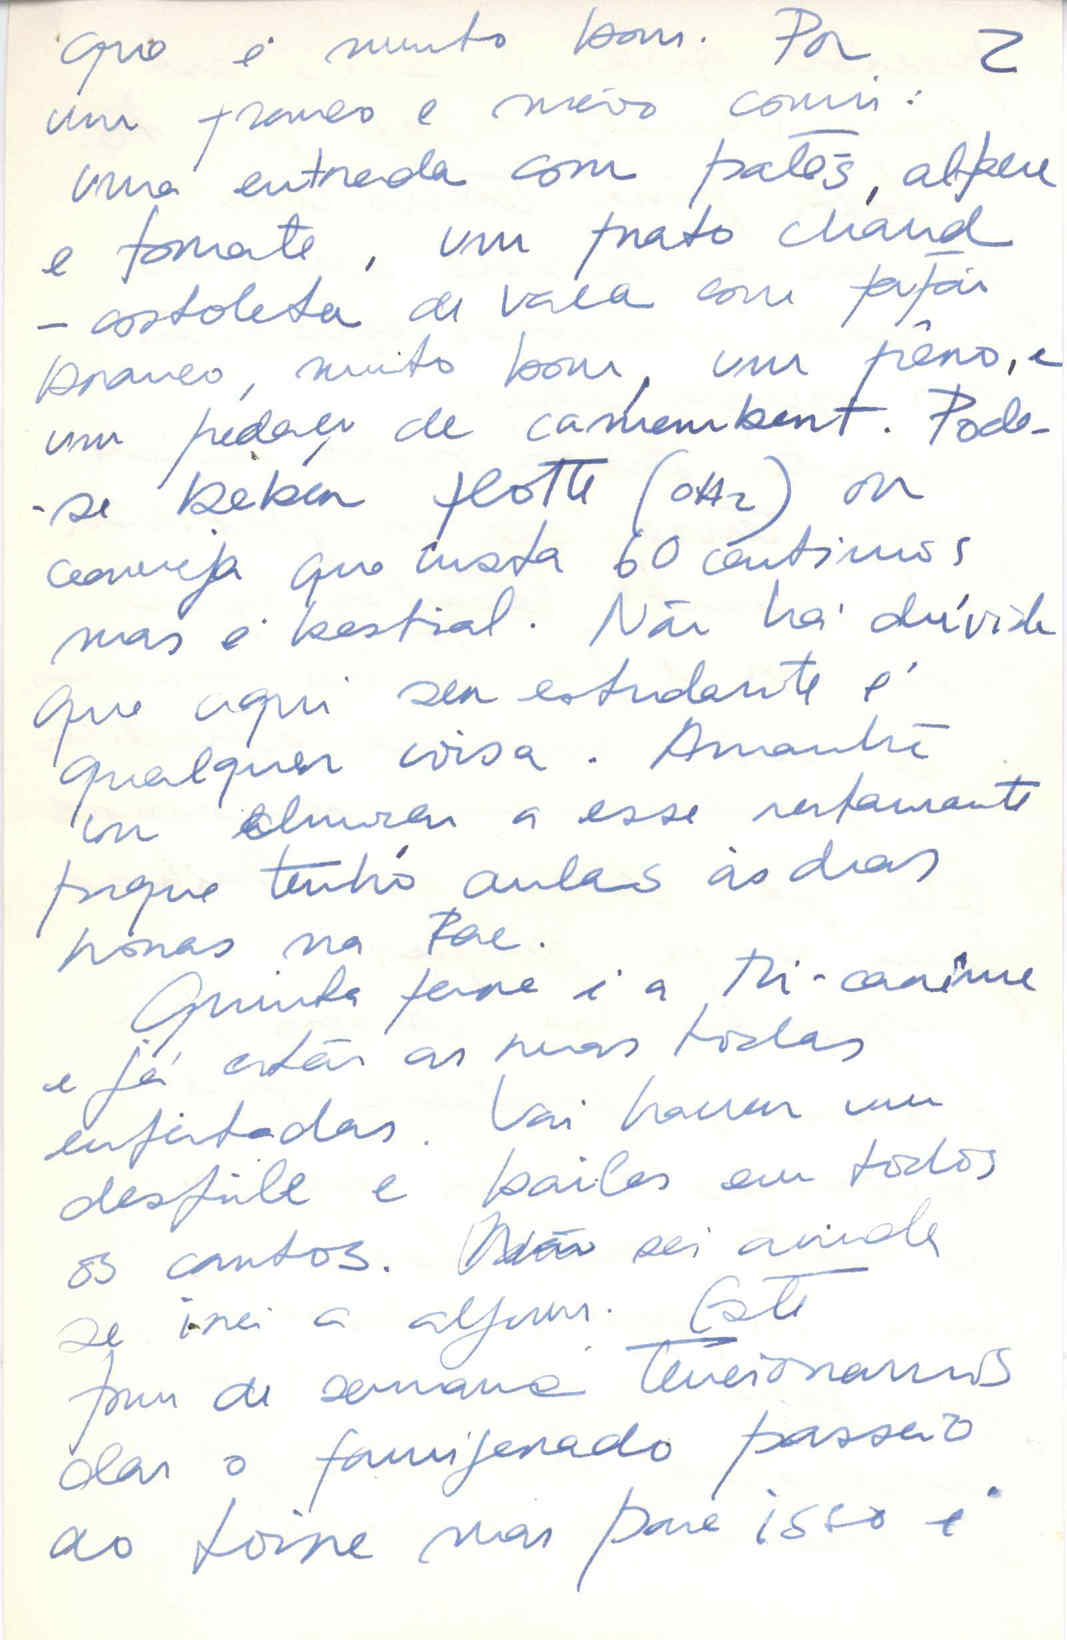 que é muito bom. Por 2
um franco e meio comi:
uma entrada com patês, alface
e tomate, um prato chaud
- costoleta de vaca com feijão
branco, muito bom, um pêro, e
um pedaço de camembert. Pode-
-se bebêr flotte (OH2) ou
cerveja que custa 60 centimos
mas é bestial. Não há dúvida
que aqui ser estudante é
qualquer coisa. Amanhã
vou almoçar a esse restaurante
porque tenho aulas às duas
horas na Fac.
Quinta feira é a mi-carême
e já estão as ruas todas
enfeitadas. Vai haver um
desfile e bailes em todos
os cantos. Não sei ainda
se irei a algum. Este
fim de semana tencionamos
dar o famigerado passeio
ao Loire mas para isso é